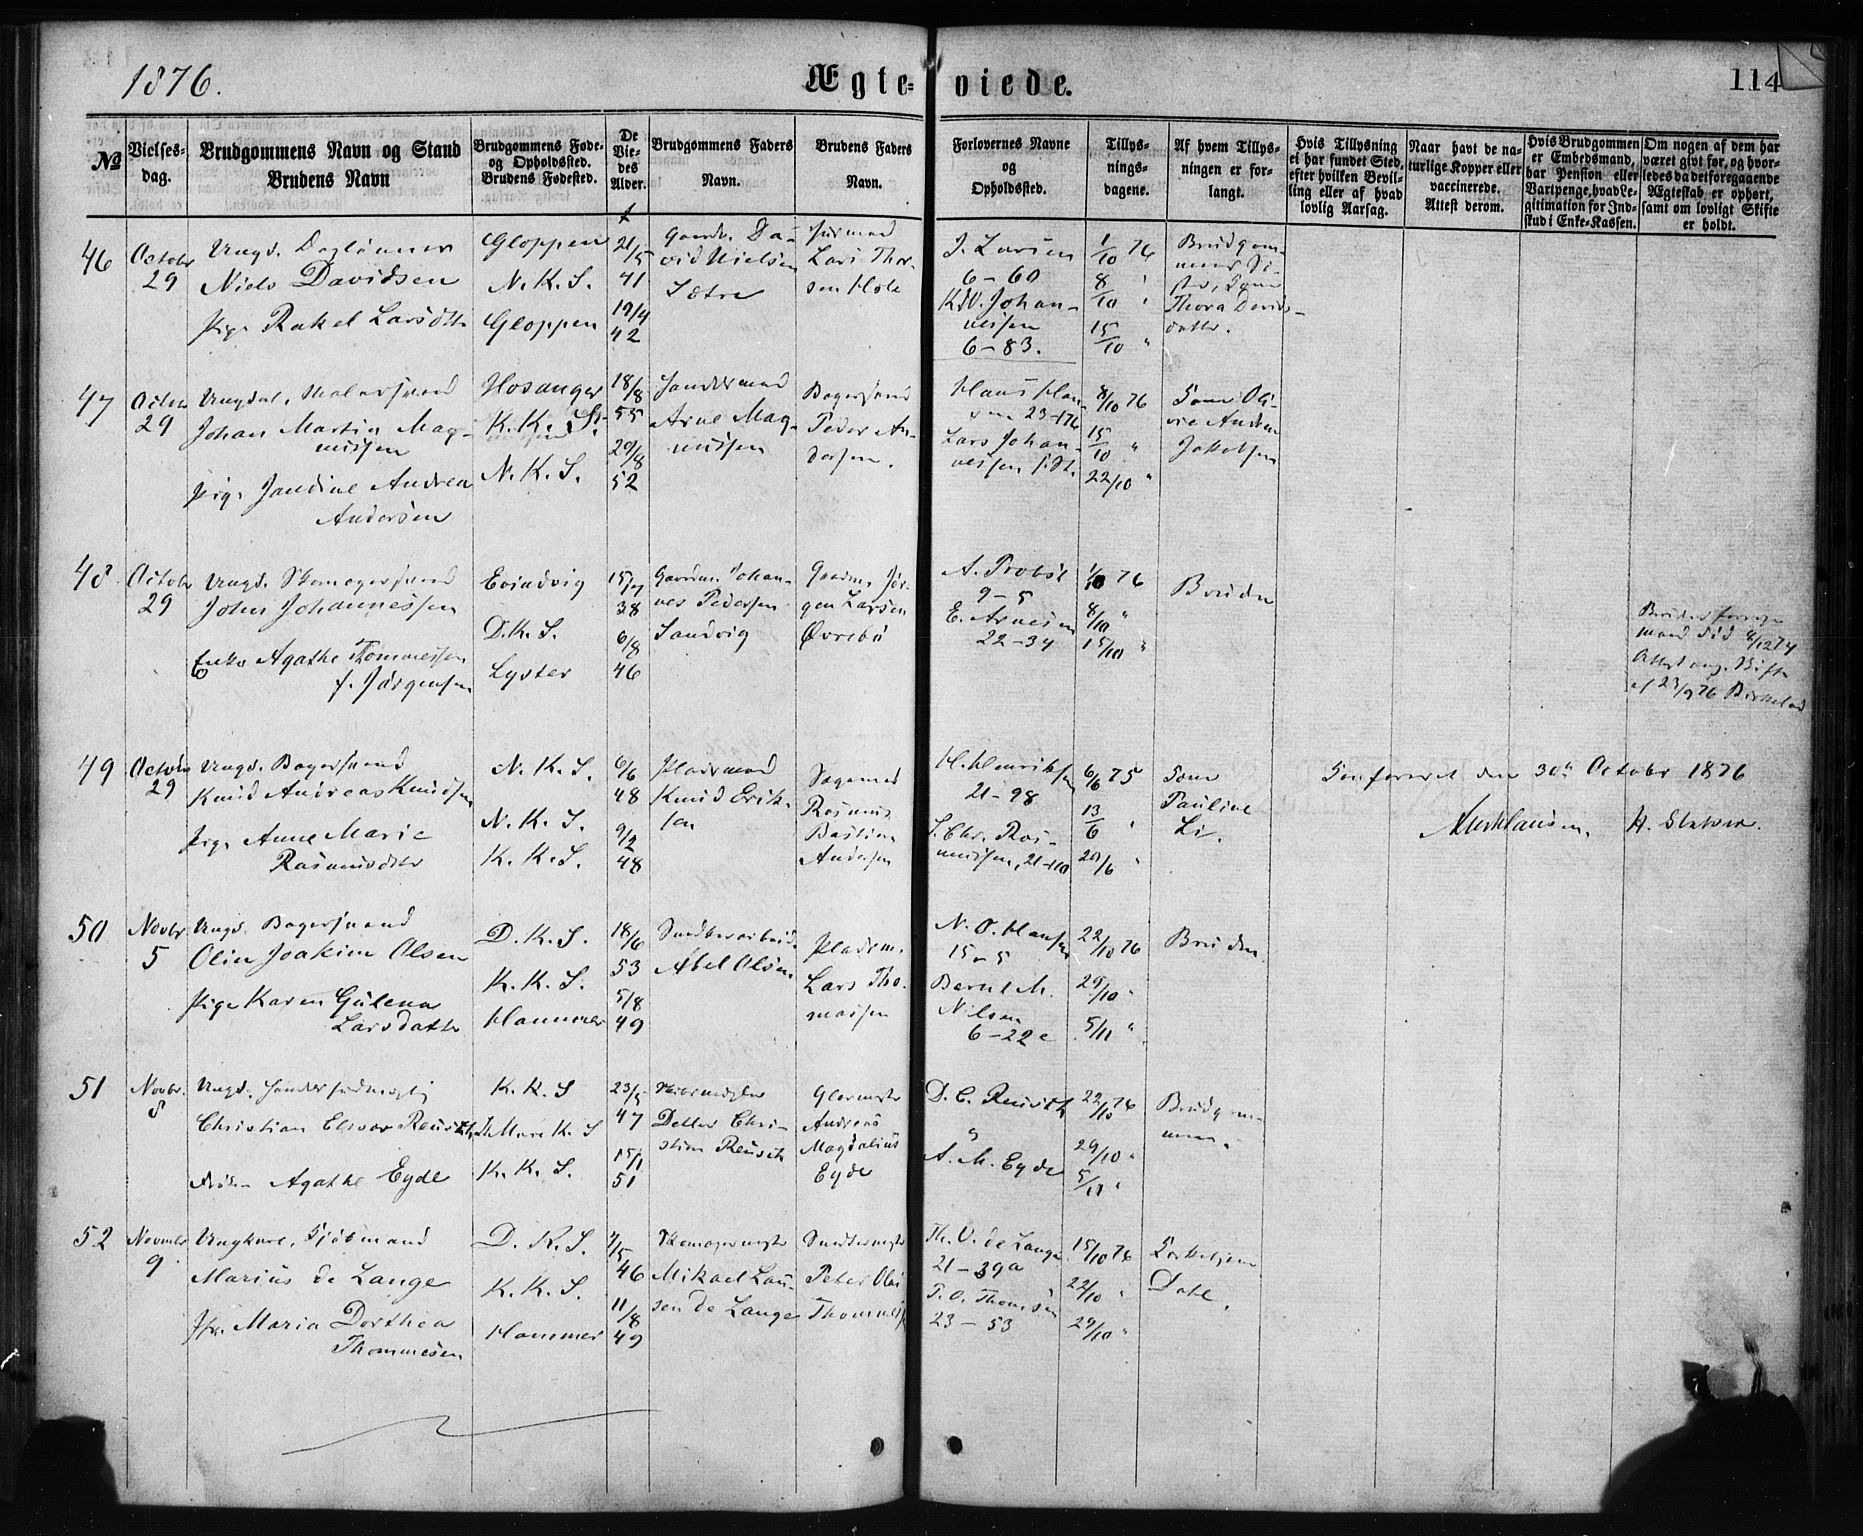 1876.
Ægte-viede.
114
No
Vielses-
dag.
Brudgommens Navn og Stand
Brudens Navn
Brudgommens Føde-
og Opholdssted.
Brudens Fødested.
De
Vie-
des
Alder.
Brudgommens Faders
Navn.
Brudens Faders
Navn.
Forlovernes Navne
og
Opholdssted.
Tillys-
nings-
dagene.
Af hvem Tillys-
ningen er for-
langt.
Hvis Tillysning
ei har fundet Sted,
efter hvilken Bevil-
ling eller af hvad
lovlig Aarsag.
Naar havt de na-
turlige Kopper eller
vaccinerede.
Attest derom.
Hvis Brudgommen
er Embedsmand,
har Pension eller
Vartpenge, hvad Le-
gitimation for Ind-
skud i Enke-Kassen.
Om nogen af dem har
været givt før, og hvor-
ledes da det foregaaende
Ægteskab er ophørt,
samt om lovligt Skifte
er holdt.
46
Octobr
29
Ungk. Daglønner
Niels Davidsen
Pige Rakel Larsdtr
Gloppen
N. K. S.
Gloppen
21/5
41
19/4
42
Gaardm. Da-
vid Nielsen
Sætre
Huusmand
Lars Thor-
sen Hole
J. Larsen
6-60
Kd V. Johan-
nessen
6-83.
1/10 76
8/10 "
15/10 "
Brudgom-
mens Sø-
ster, Tjene
Thora Davids-
datter.
47
Octobr
29
Ungkal. Malersvend
Johan Martin Mag-
nussen
Pige Jandine Andrea
Andersen
Hosanger
K. K. S.
N. K. S.
18/8
55
29/8
52
Handelsmand
Arne Mag-
nussen
Bagersvend
Peder An-
dersen.
Hans Han-
sen 23-176
Lars Johan-
nessen
8/10 76
15/10 "
22/10 "
Tom Oli-
vie Andrea
Jakobsen
48
Octobr
29
Ungk. Skomagersvend
John Johannessen
Enke Agathe Tommessen
f. Jørgensen
Evindvig
D. K. S.
Lyster
15/7
38
6/8
46
Gaardm. Johan-
nes Pedersen
Sandvig
Gaardm. Jør-
gen Larsen
Øvrebø
A. Probst
9-5
E. Arnesen
22-34
1/10 76
8/10 "
15/10 "
Bruden
Brudens forrige
mand død 8/12 74
Attest ang. Skifte
af 23/9 76 Birkeland
49
Octobr
29
Ungk. Bagersvend
Knud Andreas Knudsen
Pige Anne Marie
Rasmusdtr
N. K. S.
N. K. S.
K. K. S.
6/6
48
9/2
48
Pladsmand
Knud Erik-
sen
Sagmand
Rasmus
Bastian
Andersen
H. Henriksen
21-98
S. Chr. Ras-
mussen, 21-110
6/6 75
13/6 "
20/6 "
Tom
Pauline
Li.
Konfereret den 30te Octobr 1876
Aug. Klausen.
H. Slatver.
50
Novbr
5
Ungk. Bagersvend
Olin Joakim Olsen
Pige Karen Gulena
Larsdatter
D. K. S.
K. K. S.
Hammer
18/6
53
5/8
49
Snedkerarbeid.
Abel Olsen
Pladsm.
Lars Tho-
massen
N. O. Hansen
15-5
Bernt M.
Nilsen
6-22c
22/10 76
29/10 "
5/11 "
Bruden
51
Novbr.
8
Ungk. Handelsfuldmægtig
Christian Elivar Reusch
Frøken Agathe Eyde
K. K. S
St. Mare K. S
K. K. S.
23/5
47
15/1
51
Skibsmægler
Detlev Chri-
stian Reusch
Glarmester
Andreas
Magdalius
Eyde
D. C. Reusch
og
A. M. Eyde
22/10 76
29/10 "
5/11 "
Brudgom-
men.
52
Novembr
9
Ungkarl, Sjømand
Marius de Lange
Jfr. Maria Dorthea
Thommesen
D. K. S.
K. K. S.
Hammer
7/5
46
11/8
49
Skomagermester
Mikael Lau-
sen de Lange
Snedkermester
Peter Olai
Thommesen
Th. V. de Lange
21-39a
P. O. Thomsen
23-53
15/10 76
22/10 "
29/10 "
Torkelsen
Dahl.